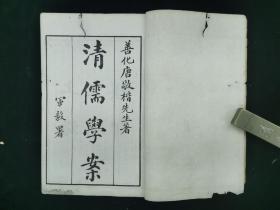 善化唐敬楷先生著
清儒學案
單毅署